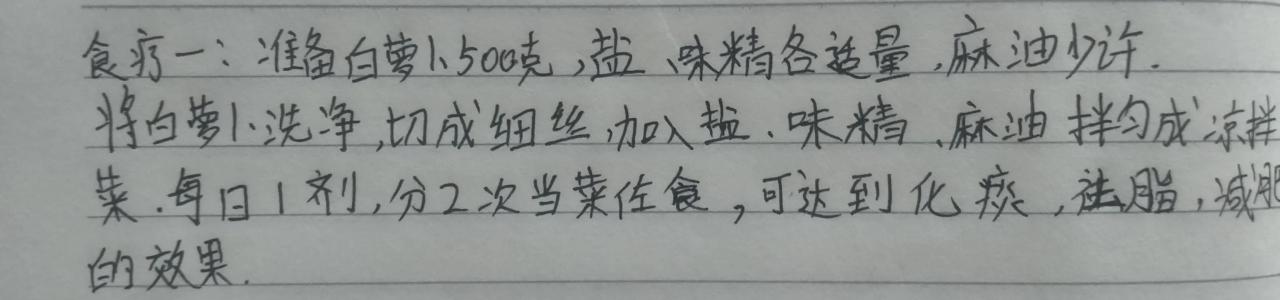 食疗一：准备白萝卜500克，盐、味精各适量，麻油少许.
将白萝卜洗净，切成细丝，加入盐、味精、麻油拌匀成凉拌
菜.每日1剂，分2次当菜佐食，可达到化痰，祛脂，减肥
的效果.